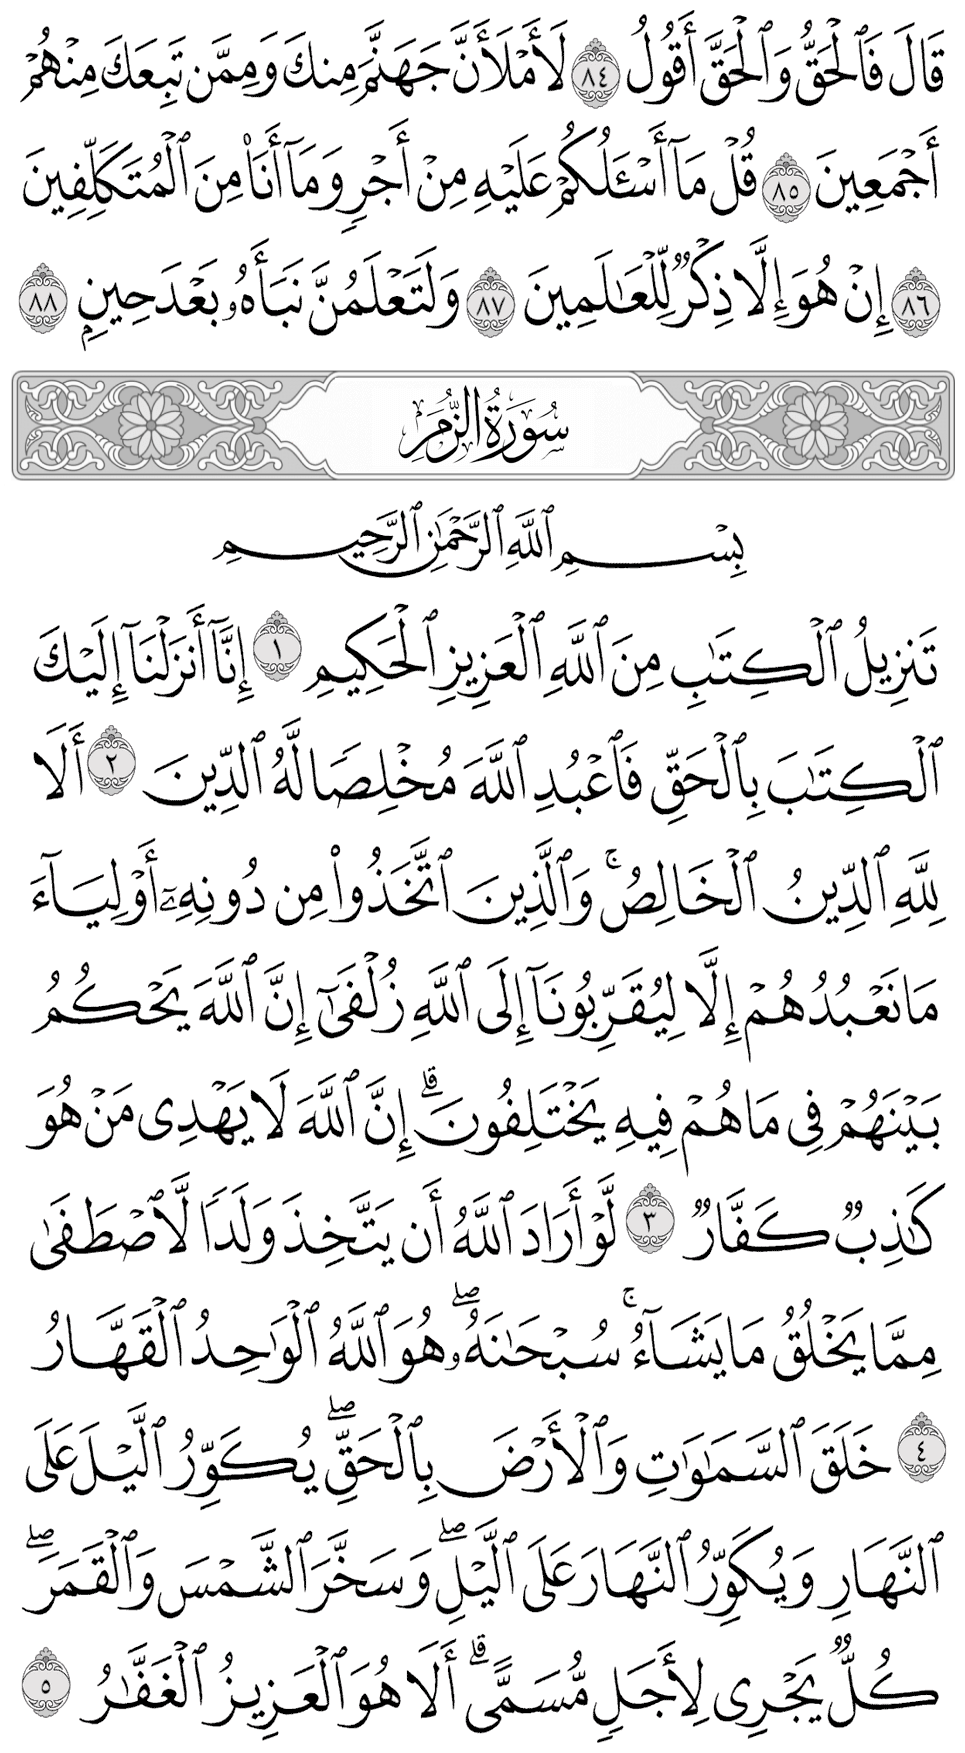 قَالَ فَٱلْحَقُّ وَٱلْحَقَّ أَقُولُ ٨٤ لَأَمْلَأَنَّ جَهَنَّمَ مِنكَ وَمِمَّن تَبِعَكَ مِنْهُمْ
أَجْمَعِينَ ٨٥ قُلْ مَآ أَسْـَٔلُكُمْ عَلَيْهِ مِنْ أَجْرٍ وَمَآ أَنَا۠ مِنَ ٱلْمُتَكَلِّفِينَ
٨٦ إِنْ هُوَ إِلَّا ذِكْرٌ لِّلْعَٰلَمِينَ ٨٧ وَلَتَعْلَمُنَّ نَبَأَهُۥ بَعْدَ حِينٍۭ ٨٨
سُورَةُ الزُّمَرِ
بِسْمِ ٱللَّهِ ٱلرَّحْمَٰنِ ٱلرَّحِيمِ
تَنزِيلُ ٱلْكِتَٰبِ مِنَ ٱللَّهِ ٱلْعَزِيزِ ٱلْحَكِيمِ ١ إِنَّآ أَنزَلْنَآ إِلَيْكَ
ٱلْكِتَٰبَ بِٱلْحَقِّ فَٱعْبُدِ ٱللَّهَ مُخْلِصًا لَّهُ ٱلدِّينَ ٢ أَلَا
لِلَّهِ ٱلدِّينُ ٱلْخَالِصُ ۚ وَٱلَّذِينَ ٱتَّخَذُوا۟ مِن دُونِهِۦٓ أَوْلِيَآءَ
مَا نَعْبُدُهُمْ إِلَّا لِيُقَرِّبُونَآ إِلَى ٱللَّهِ زُلْفَىٰٓ إِنَّ ٱللَّهَ يَحْكُمُ
بَيْنَهُمْ فِى مَا هُمْ فِيهِ يَخْتَلِفُونَ ۗ إِنَّ ٱللَّهَ لَا يَهْدِى مَنْ هُوَ
كَٰذِبٌ كَفَّارٌ ٣ لَّوْ أَرَادَ ٱللَّهُ أَن يَتَّخِذَ وَلَدًا لَّٱصْطَفَىٰ
مِمَّا يَخْلُقُ مَا يَشَآءُ ۚ سُبْحَٰنَهُۥ ۖ هُوَ ٱللَّهُ ٱلْوَٰحِدُ ٱلْقَهَّارُ
٤ خَلَقَ ٱلسَّمَٰوَٰتِ وَٱلْأَرْضَ بِٱلْحَقِّ ۖ يُكَوِّرُ ٱلَّيْلَ عَلَى
ٱلنَّهَارِ وَيُكَوِّرُ ٱلنَّهَارَ عَلَى ٱلَّيْلِ ۖ وَسَخَّرَ ٱلشَّمْسَ وَٱلْقَمَرَ ۖ
كُلٌّ يَجْرِى لِأَجَلٍ مُّسَمًّى ۗ أَلَا هُوَ ٱلْعَزِيزُ ٱلْغَفَّٰرُ ٥